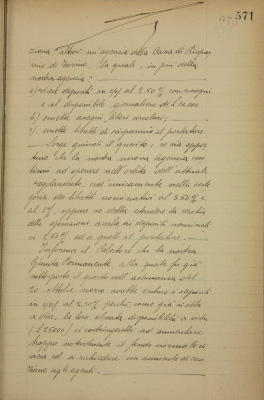 571
ziona Talbor un'agenzia della Cassa di Rispar-
mio di Torino. La quale, in più della
nostra agenzia:
a) riceve depositi in c/c/ al 2.50 % con assegni
e col disponibile giornaliero di L. 10.000
b) emette assegni liberi circolari;
c) emette libretti di risparmio al portatore
Sorge quindi il quesito, se sia oppor-
tuno che la nostra nuova agenzia con-
tinui ad operare nell'orbita dell'attuale
regolamento, cioè unicamente nella cate-
goria dei libretti nominativi al 3.50 % e
al 3%, oppure se debba estendere la cerchia
delle operazioni anche ai depositi nominati-
vi 2.50 % ed a quelli al portatore.
Informa il Direttore che la nostra
Giunta Permanente, alla quale fu già
sottoposto il quesito nell'adunanza del
20 ottobre scorso avrebbe escluso i depositi
in c/c/ al 2.50 % perchè, come già si ebbe
a dire, la loro elevata disponibilità a vista
(L. 25000) ci costringerebbe ad aumentare
troppo notevolmente il fondo normale di
cassa ed a richiedere un aumento di cau-
zione agli agenti.